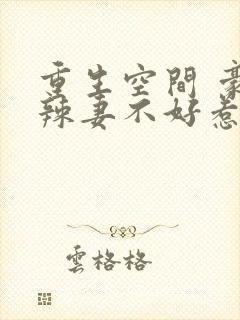 重生空間 豪
辣妻不好惹
雲格格